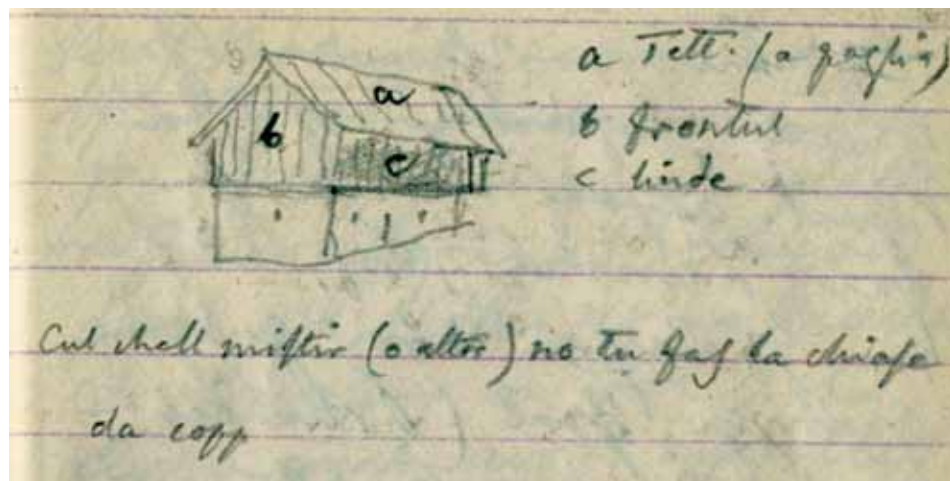 a Tett. (a paglia)
a
b
b frontul
c
c linde
Cul chell mistir (o altri) no tu fas la chiase
da copp